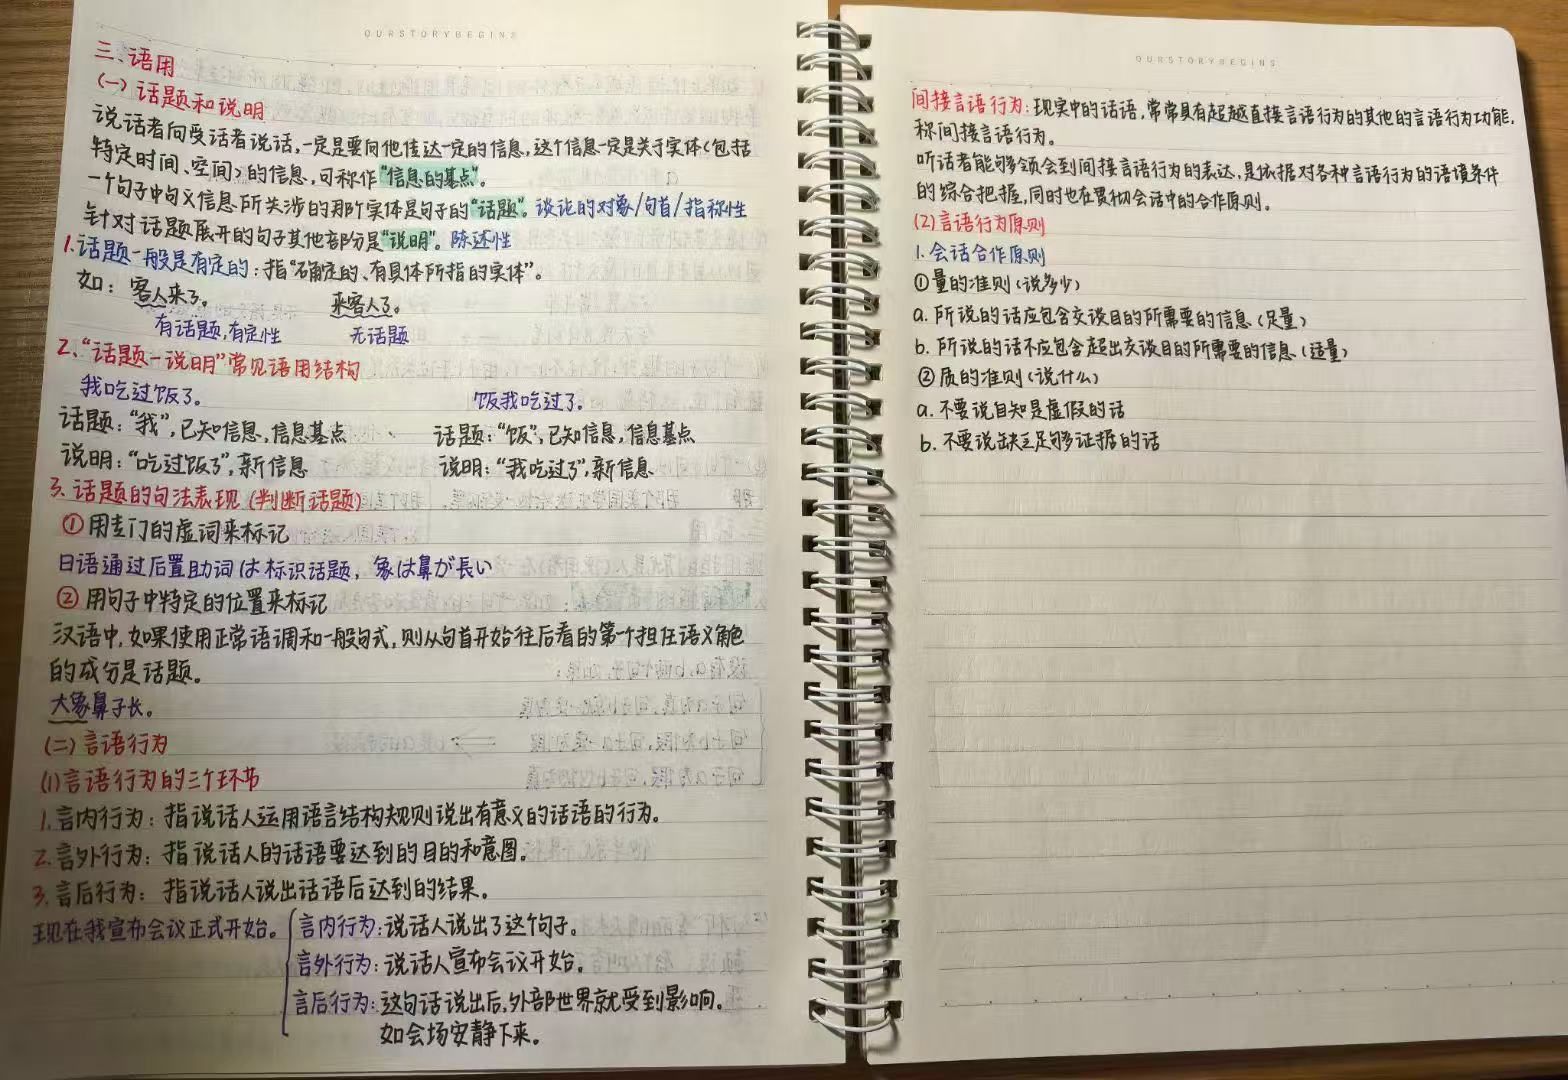 OURSTORYBEGINS
三、语用
(一)话题和说明
说话者向受话者说话,一定是要向他传达一定的信息,这个信息一定是关于实体(包括
特定时间、空间)的信息,可称作"信息的基点"。
一个句子中句义信息所关涉的那个实体是句子的"话题"。谈论的对象/句首/指称性
针对话题展开的句子其他部分是"说明"。陈述性
1.话题一般是有定的:指"确定的、有具体所指的实体"。
如:客人来了。 来客人了。
有话题,有定性 无话题
2、"话题-说明"常见语用结构
我吃过饭了。 饭我吃过了。
话题:"我",已知信息,信息基点 、 话题:"饭",已知信息,信息基点
说明:"吃过饭了",新信息 说明:"我吃过了",新信息
3、话题的句法表现(判断话题)
①用专门的虚词来标记
日语通过后置助词は标识话题,象は鼻が長い
②用句子中特定的位置来标记
汉语中,如果使用正常语调和一般句式,则从句首开始往后看的第一个担任语义角色
的成分是话题。
大象鼻子长。
(二)言语行为
(1)言语行为的三个环节
1.言内行为:指说话人运用语言结构规则说出有意义的话语的行为。
2.言外行为:指说话人的话语要达到的目的和意图。
3.言后行为:指说话人说出话语后达到的结果。
现在我宣布会议正式开始。 言内行为:说话人说出了这个句子。
言外行为:说话人宣布会议开始。
言后行为:这句话说出后,外部世界就受到影响。
如会场安静下来。
OURSTORYBEGINS
间接言语行为:现实中的话语,常常具有超越直接言语行为的其他的言语行为功能,
称间接言语行为。
听话者能够领会到间接言语行为的表达,是依据对各种言语行为的语境条件
的综合把握,同时也在贯彻会话中的合作原则。
(2)言语行为原则
1.会话合作原则
①量的准则(说多少)
a.所说的话应包含交谈目的所需要的信息(足量)
b.所说的话不应包含超出交谈目的所需要的信息(适量)
②质的准则(说什么)
a.不要说自知是虚假的话
b.不要说缺乏足够证据的话